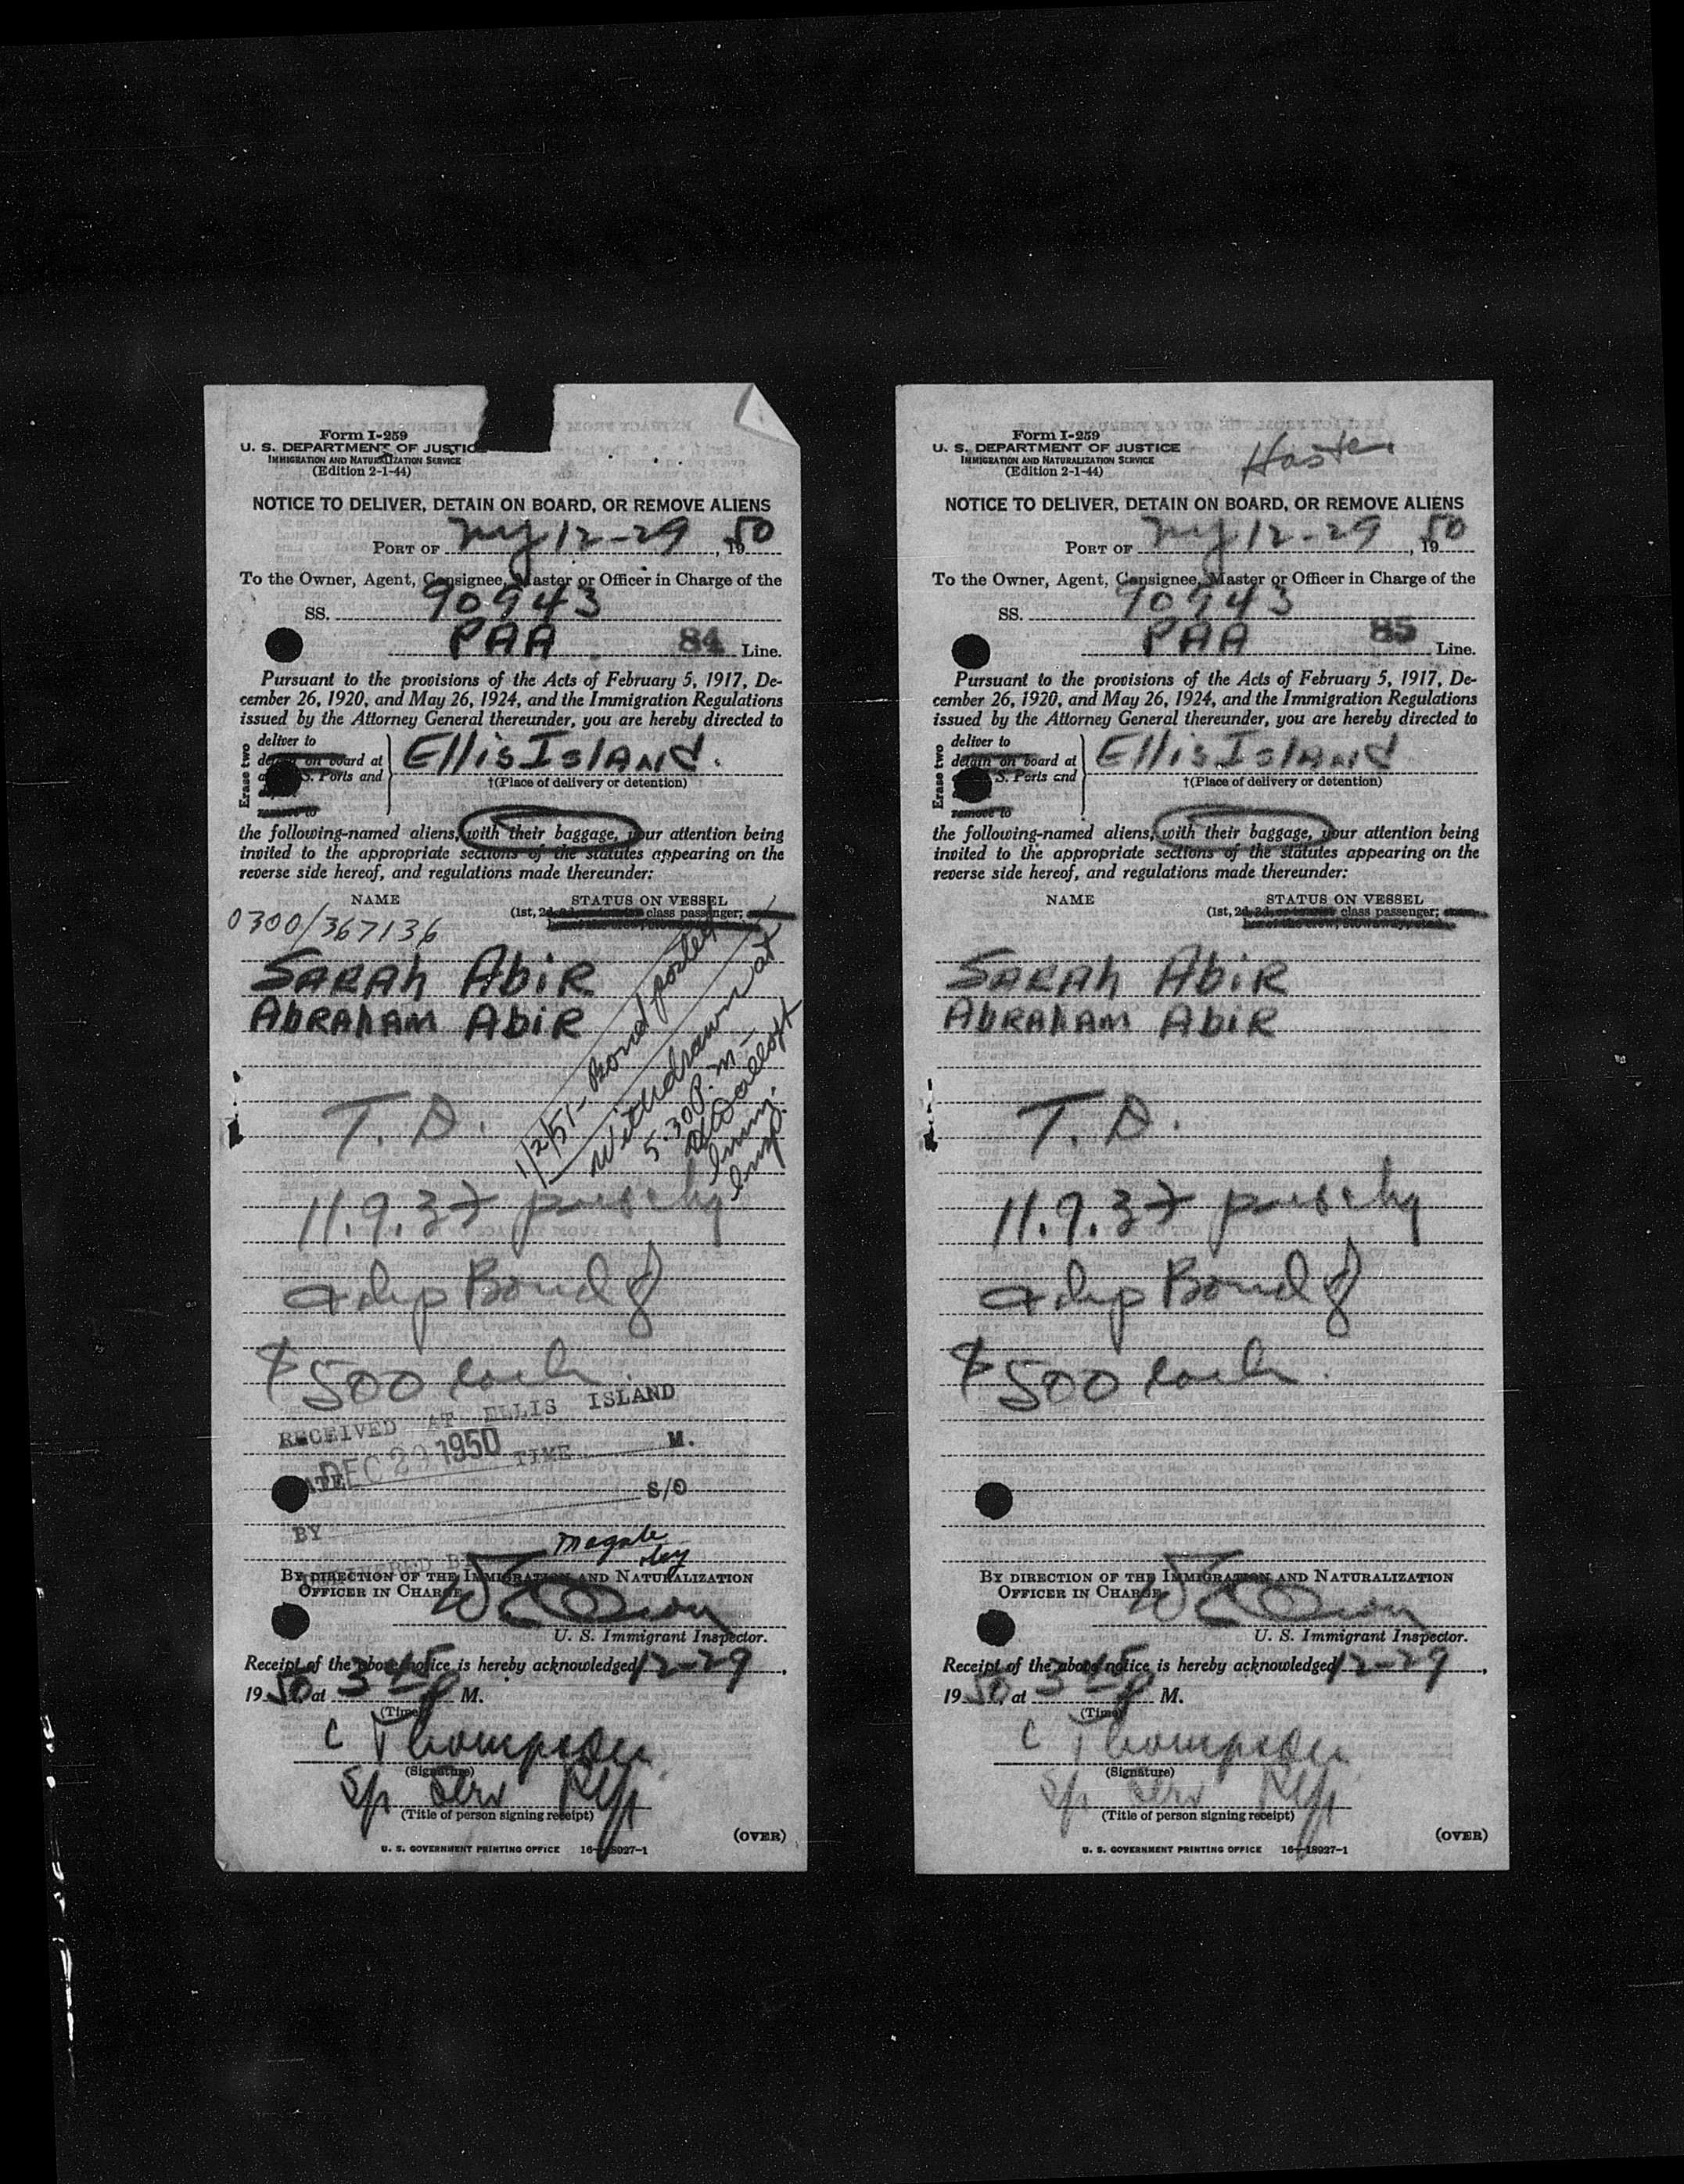 Form I-259
U. S. DEPARTMENT OF JUSTICE
IMMIGRATION AND NATURALIZATION SERVICE
(Edition 2-1-44)
NOTICE TO DELIVER, DETAIN ON BOARD, OR REMOVE ALIENS
PORT OF NY 12-29, 1950
To the Owner, Agent, Consignee, Master or Officer in Charge of the
SS. 90943
PAA 84 Line.
Pursuant to the provisions of the Acts of February 5, 1917, De-
cember 26, 1920, and May 26, 1924, and the Immigration Regulations
issued by the Attorney General thereunder, you are hereby directed to
Erase two
deliver to
detain on board at
S. Ports and
remove to
Ellis Island.
†(Place of delivery or detention)
the following-named aliens, with their baggage, your attention being
invited to the appropriate sections of the statutes appearing on the
reverse side hereof, and regulations made thereunder:
NAME STATUS ON VESSEL
(1st, 2d, 3d, or tourist class passenger;
0300/367136
SARAh AbiR
AbRAhAM AbiR
1/2/51- Bond posted
Withdrawn at
5:30 P.m.-
Imm.
Insp.
T. D.
11.9.37
Bond of
$500 each.
RECEIVED AT ELLIS ISLAND
DATE DEC 29 1950 TIME M.
S/O
BY
DELIVERED BY
BY DIRECTION OF THE IMMIGRATION AND NATURALIZATION
OFFICER IN CHARGE
U. S. Immigrant Inspector.
Receipt of the above notice is hereby acknowledged 12-29,
1950 at 3 45 P M.
(Time)
C Thompson
(Signature)
Sp Serv Rep
(Title of person signing receipt)
(OVER)
U. S. GOVERNMENT PRINTING OFFICE 16—18927-1
Form I-259
U. S. DEPARTMENT OF JUSTICE
IMMIGRATION AND NATURALIZATION SERVICE
(Edition 2-1-44)
NOTICE TO DELIVER, DETAIN ON BOARD, OR REMOVE ALIENS
PORT OF NY 12-29, 1950
To the Owner, Agent, Consignee, Master or Officer in Charge of the
SS. 90943
PAA 85 Line.
Pursuant to the provisions of the Acts of February 5, 1917, De-
cember 26, 1920, and May 26, 1924, and the Immigration Regulations
issued by the Attorney General thereunder, you are hereby directed to
Erase two
deliver to
detain on board at
S. Ports and
remove to
Ellis Island
†(Place of delivery or detention)
the following-named aliens, with their baggage, your attention being
invited to the appropriate sections of the statutes appearing on the
reverse side hereof, and regulations made thereunder:
NAME STATUS ON VESSEL
(1st, 2d, 3d, or tourist class passenger;
SARAh AbiR
AbRAhAM AbiR
T. D.
11.9.37
Bond of
$500 each.
BY DIRECTION OF THE IMMIGRATION AND NATURALIZATION
OFFICER IN CHARGE
U. S. Immigrant Inspector.
Receipt of the above notice is hereby acknowledged 12-29,
1950 at 3 45 P M.
(Time)
C Thompson
(Signature)
Sp Serv Rep
(Title of person signing receipt)
(OVER)
U. S. GOVERNMENT PRINTING OFFICE 16—18927-1